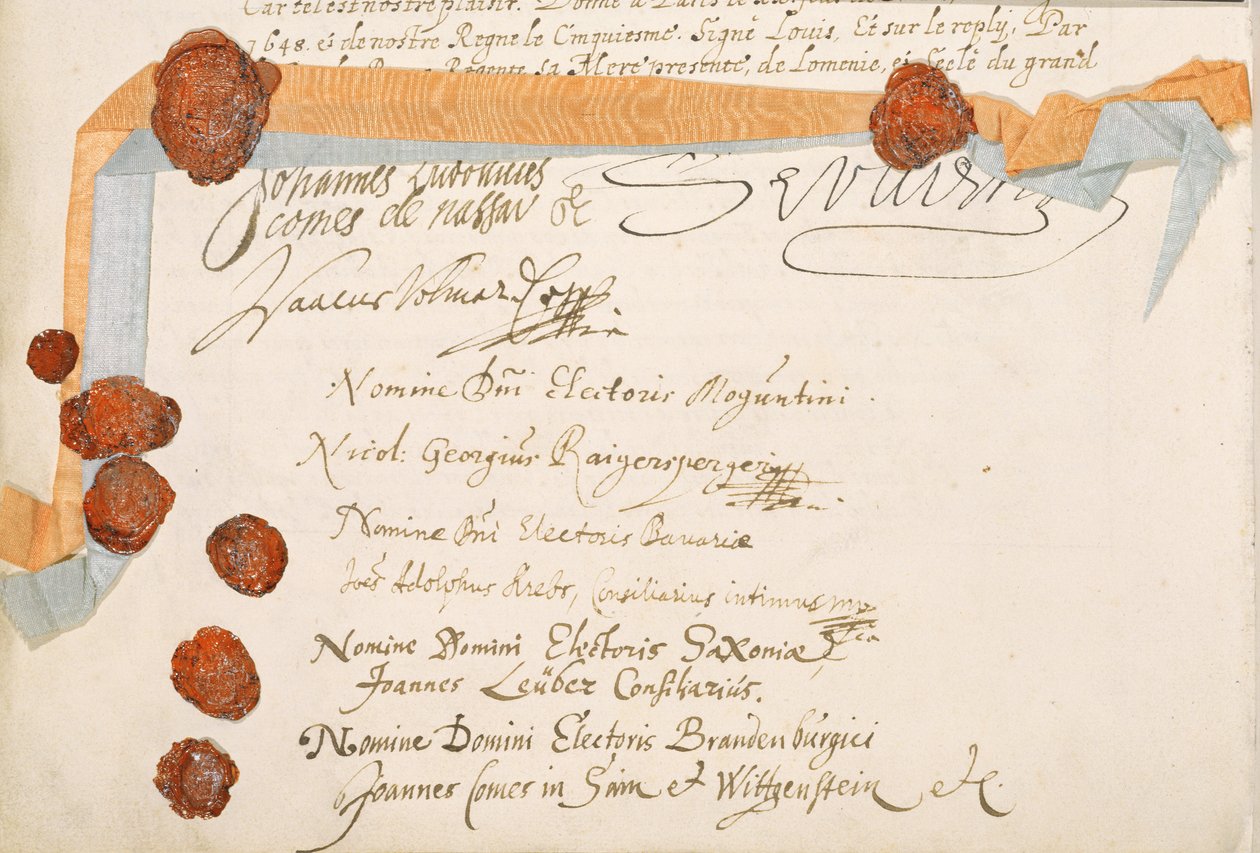 Car tel est nostre plaisir. Donné a Paris le
1648. et de nostre Regne le Cinquiesme. Signé Louis, Et sur le reply, Par
Regente sa Mere presente, de Lomenie, et Seelé du grand
Johannes Ludovicus
comes de nassau
Servien
Isaacus Volmar D
Nomine Dn̄i Electoris Moguntini.
Nicol: Georgius Raigersperger
Nomine Dn̄i Electoris Bavariæ
Joēs Adolphus Krebs, Consiliarius intimus mp
Nomine Domini Electoris Saxoniæ,
Joannes Leüber Consiliariús.
Nomine Domini Electoris Brandenbúrgici
Joannes Comes in Sain et Wittgenstein etc.